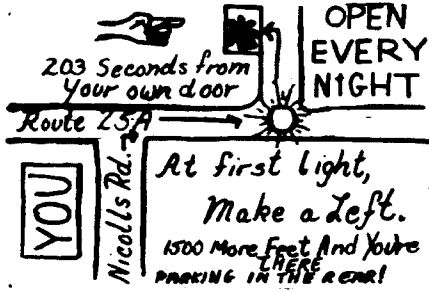 OPEN
EVERY
NIGHT
203 Seconds from
Your own door
Route 25A
YOU
Nicolls Rd.
At first light,
Make a Left.
1500 More Feet And You're
THERE
PARKING IN THE REAR!